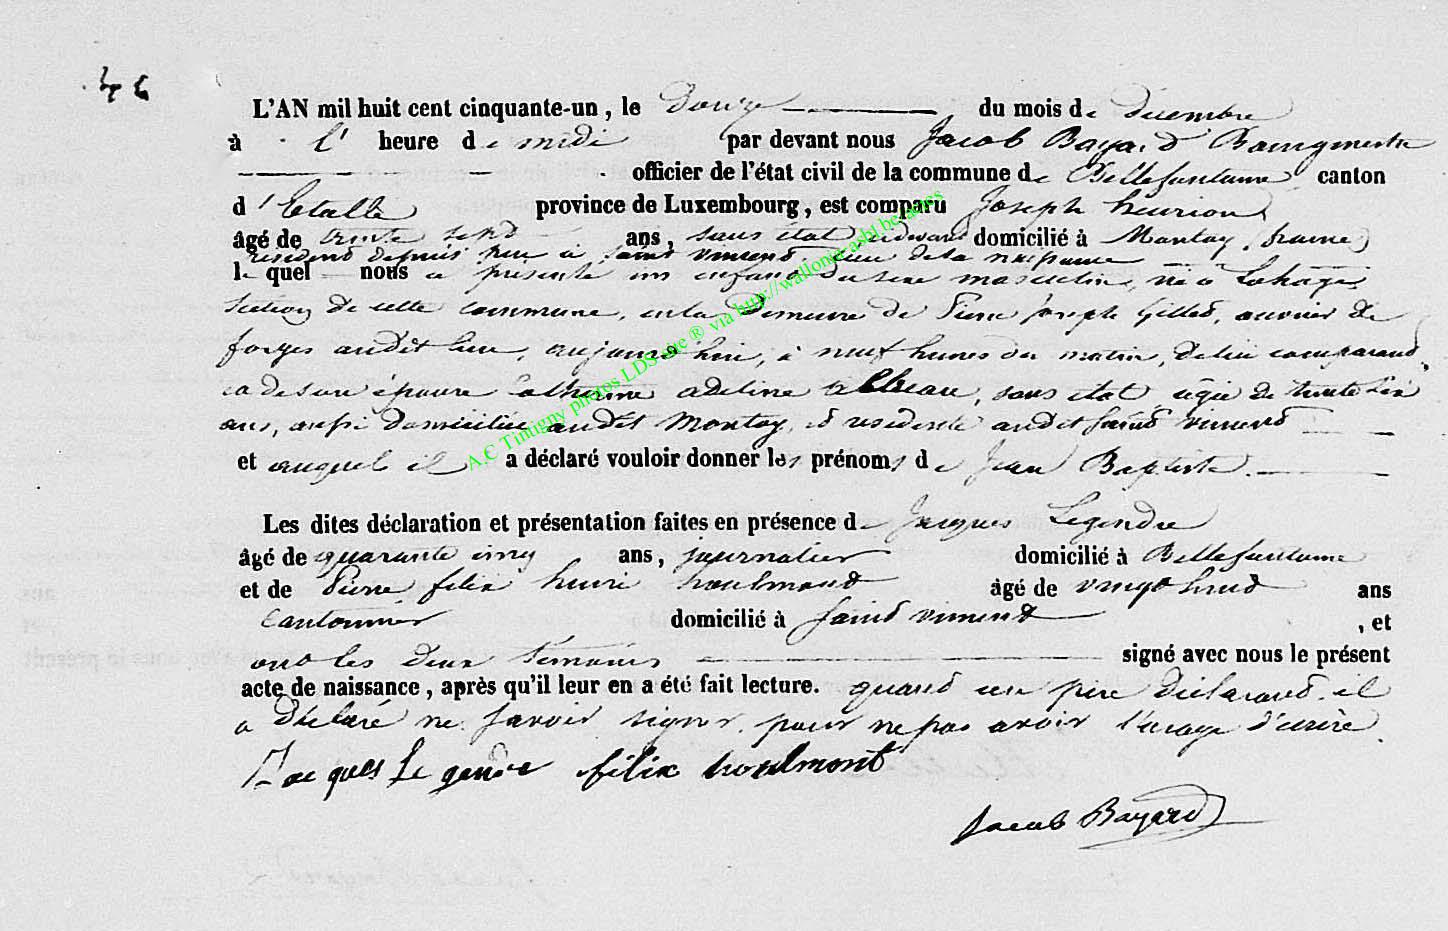 46
L'AN mil huit cent cinquante-un, le douze du mois de décembre
à l' heure de midi par devant nous Jacob Bayard Bourgmestre
officier de l'état civil de la commune de Bellefontaine canton
d'Etalle province de Luxembourg, est comparu Joseph henrion
âgé de trente sept ans, sans état domicilié à Montay, france
résident depuis peu à Saint Vincent, lieu de la
lequel nous a présenté un enfant du sexe masculin, né à Lahage
section de cette commune, en la demeure de Pierre joseph Gilles, ouvrier de
forges audit lieu, aujourd'hui, à neuf heures du matin, de lui comparant
et de son épouse Catherine adeline, sans état agée de trente six
ans, aussi domiciliée audit Montay, et residente audit saint vincent
et auquel il a déclaré vouloir donner les prénoms de Jean Baptiste
Les dites déclaration et présentation faites en présence de Jacques Legendre
âgé de quarante cinq ans, journalier domicilié à Bellefontaine
et de Pierre felix henri houlmont âgé de vingt huit ans
Cantonnier domicilié à saint vincent, et
ont les deux témoins signé avec nous le présent
acte de naissance, après qu'il leur en a été fait lecture. quand au père déclarant il
a déclaré ne savoir signer pour ne pas avoir l'usage d'écrire.
Jacques Le gendre félix houlmont
Jacob Bayard
A.C Tintigny photos LDS site ® via http://wallonia-asbl.be/actes